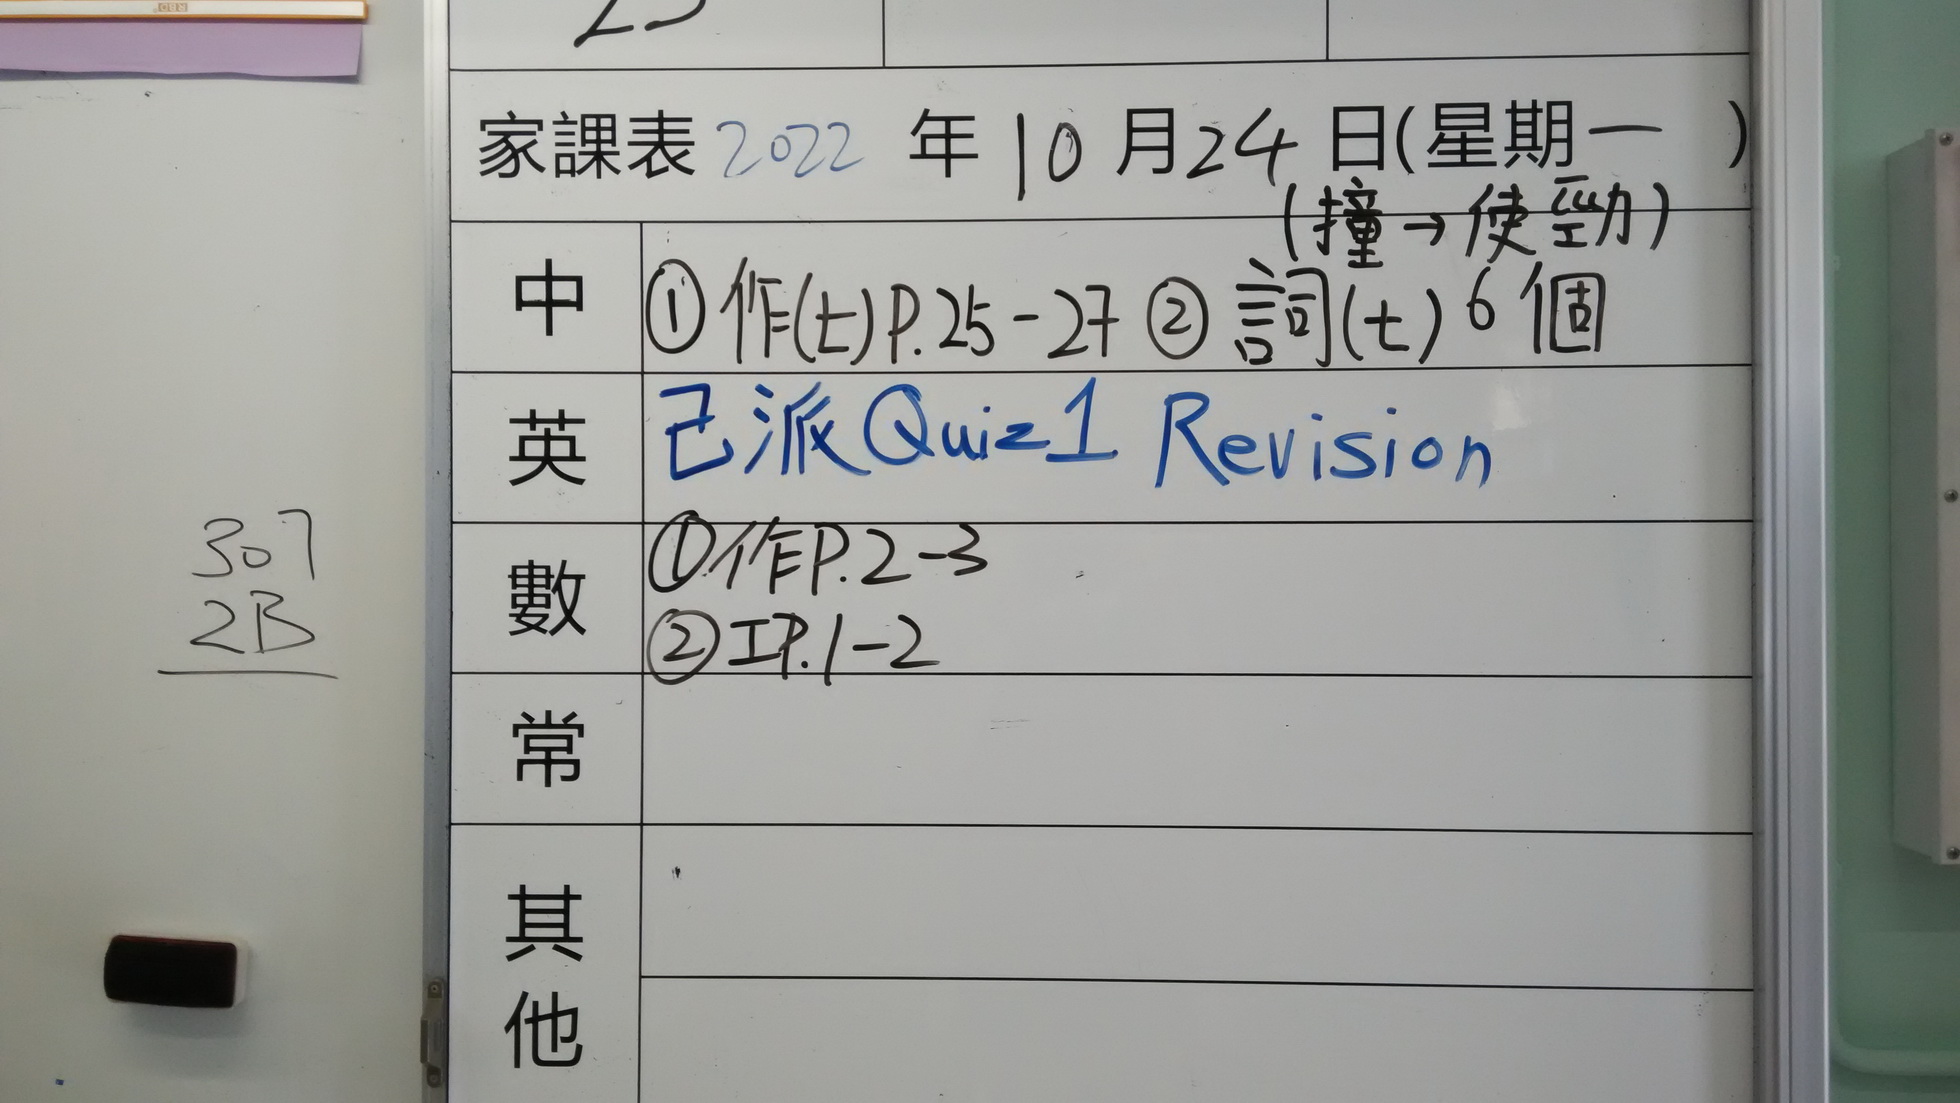 23
家課表 2022 年 10 月 24 日(星期一 )
(撞→使勁)
中 ①作(七)P.25-27 ②詞(七)6個
英 已派Quiz1 Revision
數 ①作P.2-3
②工P.1-2
常
其他
307
2B